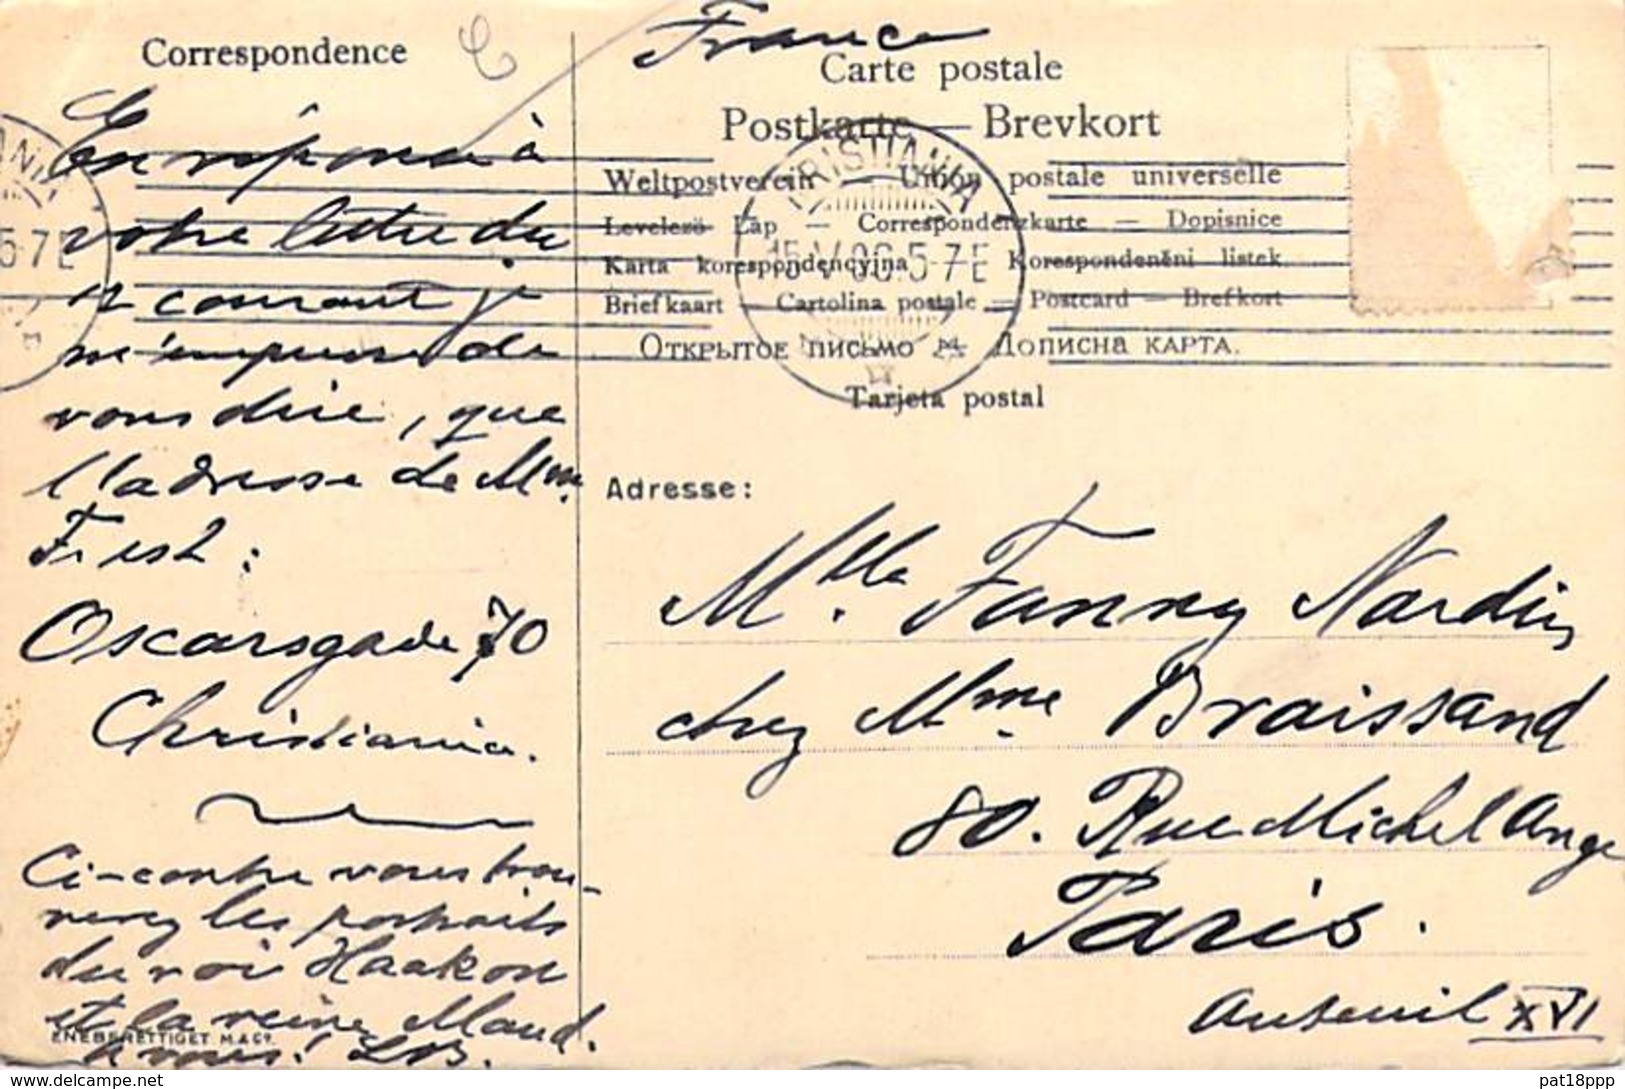 Correspondence
En réponse à
votre lettre du
12 courant je
m'empresse de
vous dire, que
l'adresse de Mme.
Oscarsgade 70
Christiania.
Ci-contre vous trou-
verez les portraits
du roi Haakon
et la reine Maud.
à vous!
ENEBERETTIGET M.A.Co.
France
Carte postale
Postkarte — Brevkort
Weltpostverein — Union postale universelle
Levelező Lap — Correspondenzkarte — Dopisnice
Karta korespondencyjna — Korespondenční listek
Briefkaart — Cartolina postale — Postcard — Brefkort
Открытое письмо — Дописна карта.
Tarjeta postal
KRISTIANIA
15 V 06 5-7 E
Adresse:
Mlle. Fanny Nardin
chez Mme. Braissand
80. Rue Michel Ange
Paris.
Auteuil XVI
pat18ppp